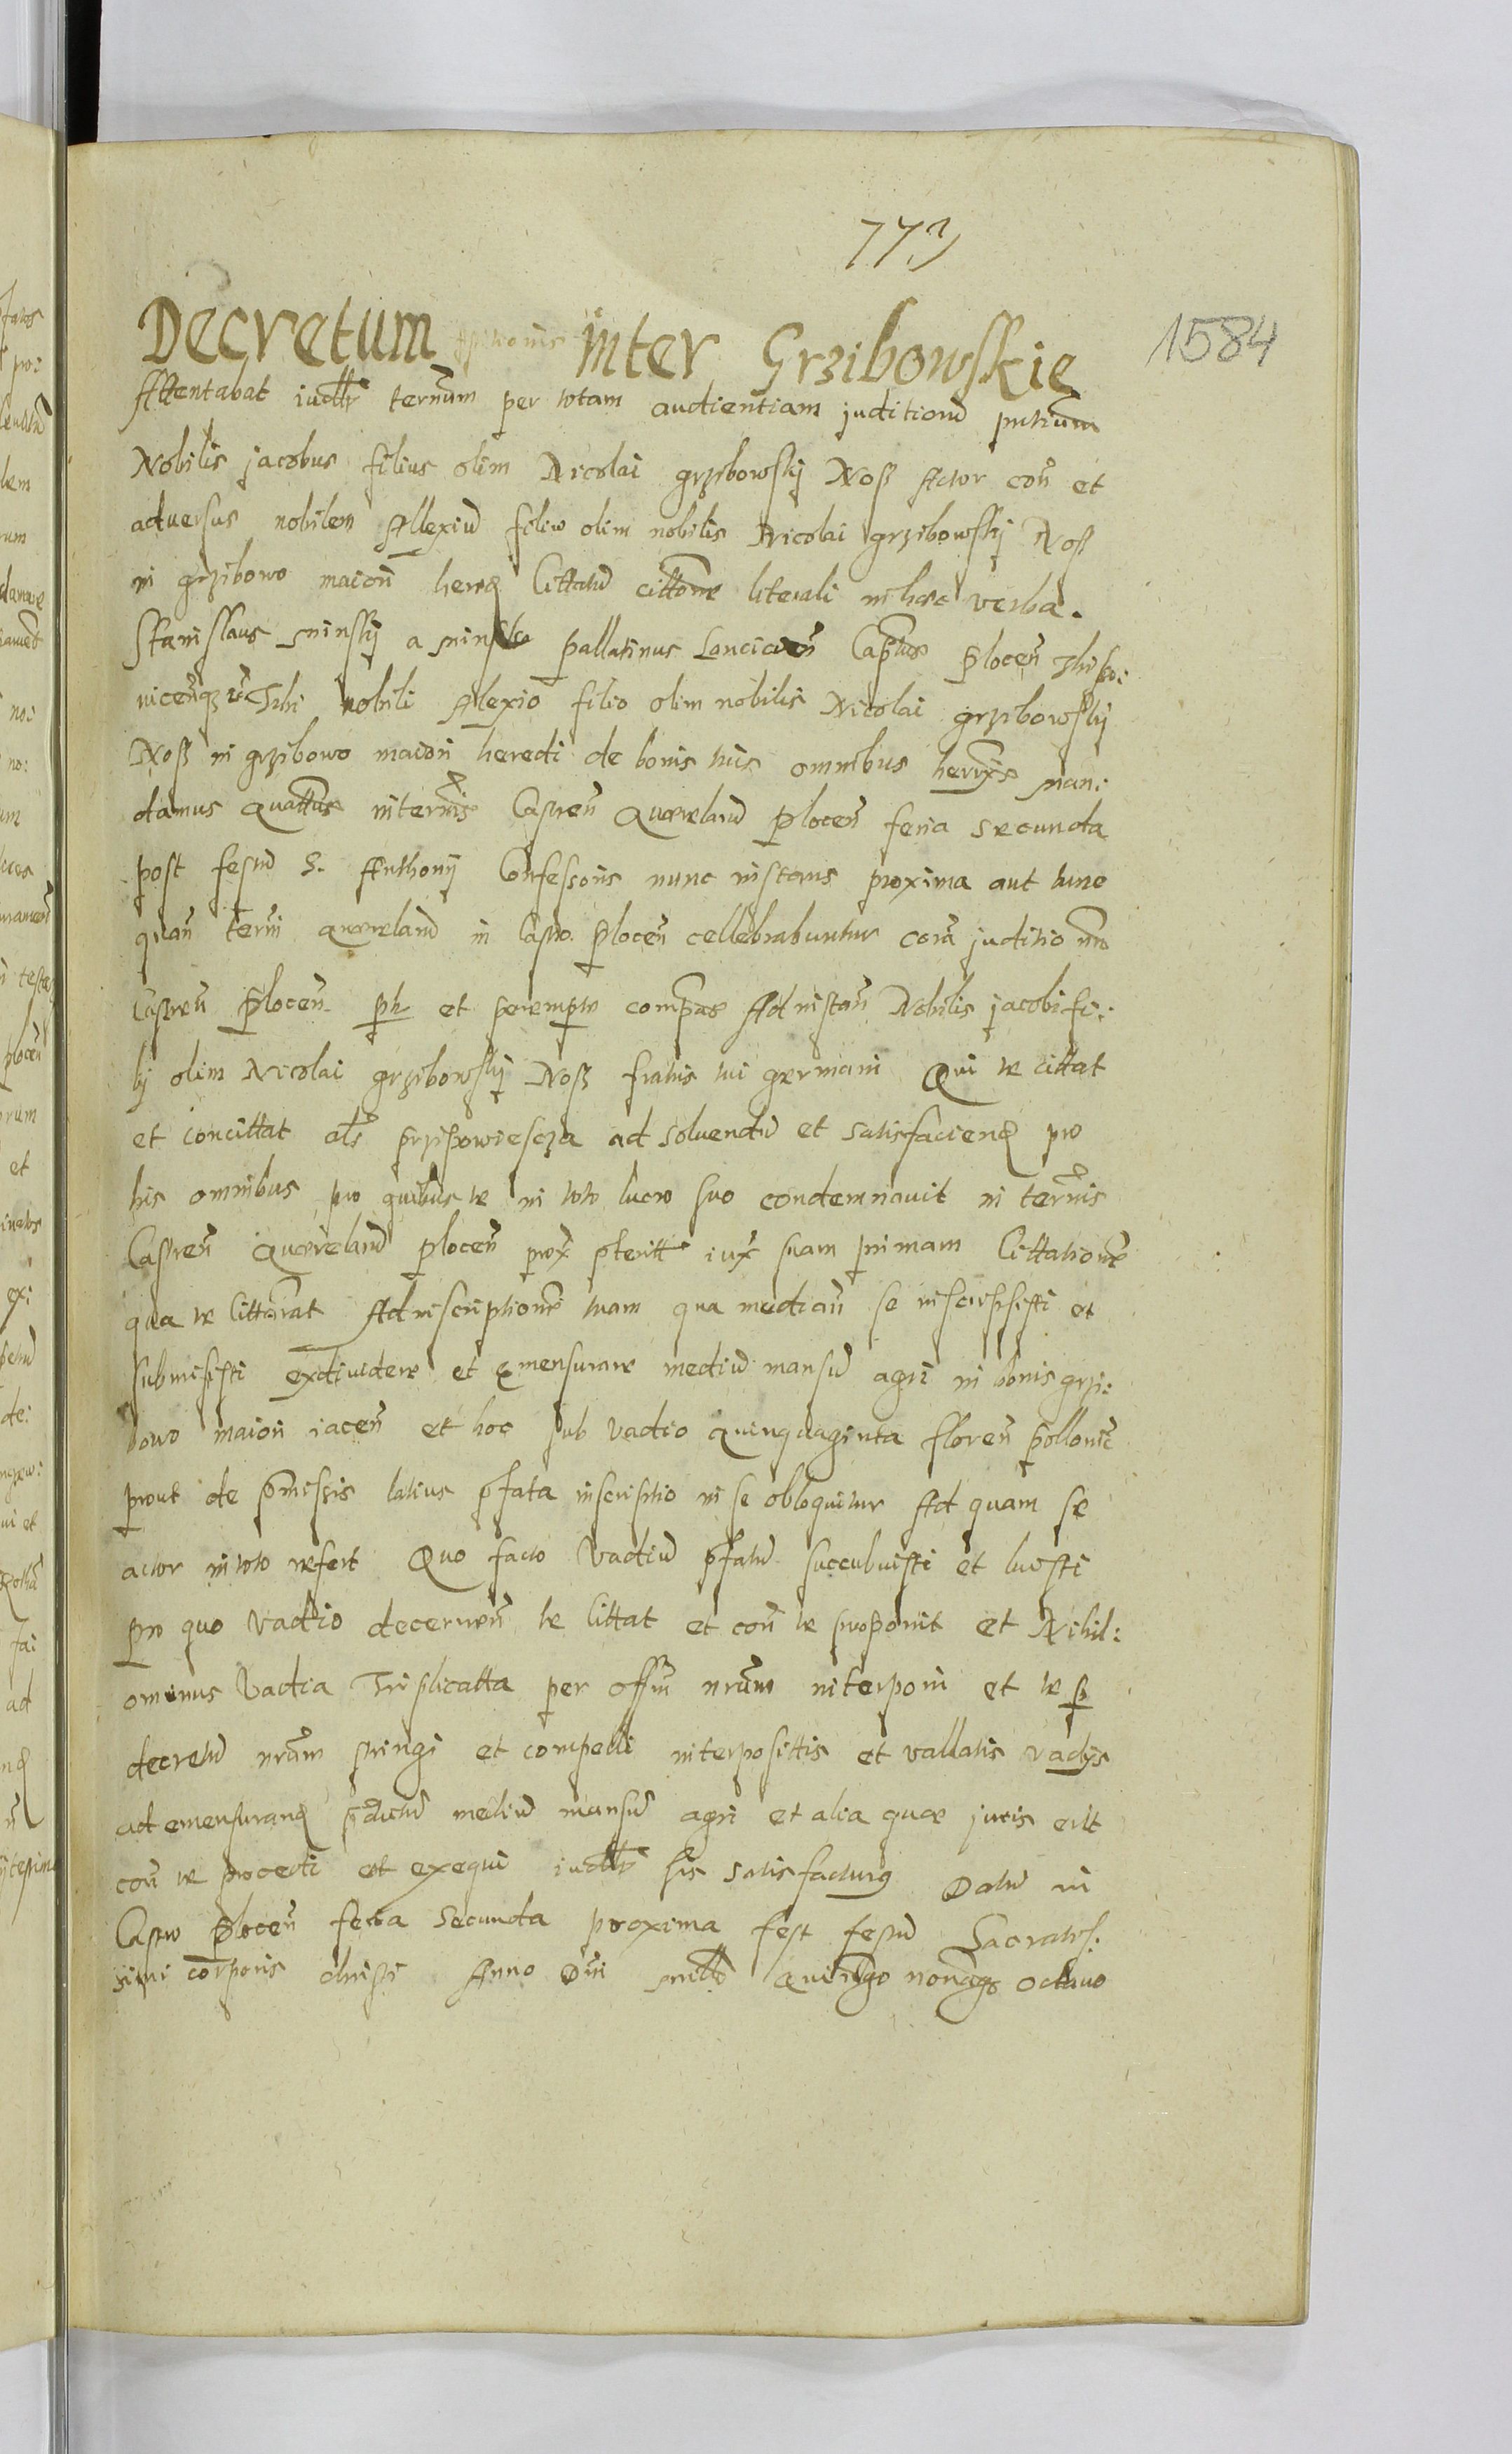 773
1584
Decretum inter Grzibowskie
Attentabat iudltr ternum per totam audientiam juditioru pntium
Nobilis jacobus filius olim Nicolai grzibowskij Noss Actor con et
adversus nobilem Allexiu filiu olim nobilis Nicolai grzibowskij Noss
in grzibowo maiori hered Cittatu cittone literali in haec verba.
Stanislaus minskij a minsko pallatinus Lancicien Captus plocen
nobili Alexio filio olim nobilis Nicolai grzibowskij
Noss in grzibowo maiori heredi de bonis tuis omnibus man:
damus quattus in terminis Castren querelaru plocen feria secunda
post festu S. Anthonij Confessoris nunc instans proxima aut tunc
quan termi querelaru in Castro plocen cellebrabuntur cora juditio nro
Castren plocen et perempto compas Ad instan Nobilis jacobi fi:
lij olim Nicolai grzibowskij Noss fratris tui germani Qui te cittat
et concittat als przipowiescza ad solvendu et satisfaciend pro
his omnibus pro quibus te in toto lucro suo condemnavit in terminis
Castren querelaru plocen prox pteritt iux suam primam Cittatione
qua te Cittarat Ad inscriptione tuam qua median se inscripsisti et
submisisti exdividere et emensurare mediu mansu agri in bonis grzi:
bowo maiori iacen et hoc sub vadio quinquaginta floren pollonic
prout de pmissis latius pfata inscriptio in se obloquitur Ad quam se
actor in toto refert Quo facto Vadiu pfatu succubuisti et luisti
pro quo vadio decernen te Cittat et con te proponit et Nihil:
ominus Vadia Triplicatta per offm nrum interponi et te p
decretu nrum stringi et compelli interposittis et vallatis vadys
ad emensurand pdictu mediu mansu agri et alia quae juris erit
con te procedi et exequi iudltr his satisfacturus Datu in
Castro plocen feria Secunda proxima post festu Sacratis:
simi corporis christi Anno Dni millo quingo nonago octavo